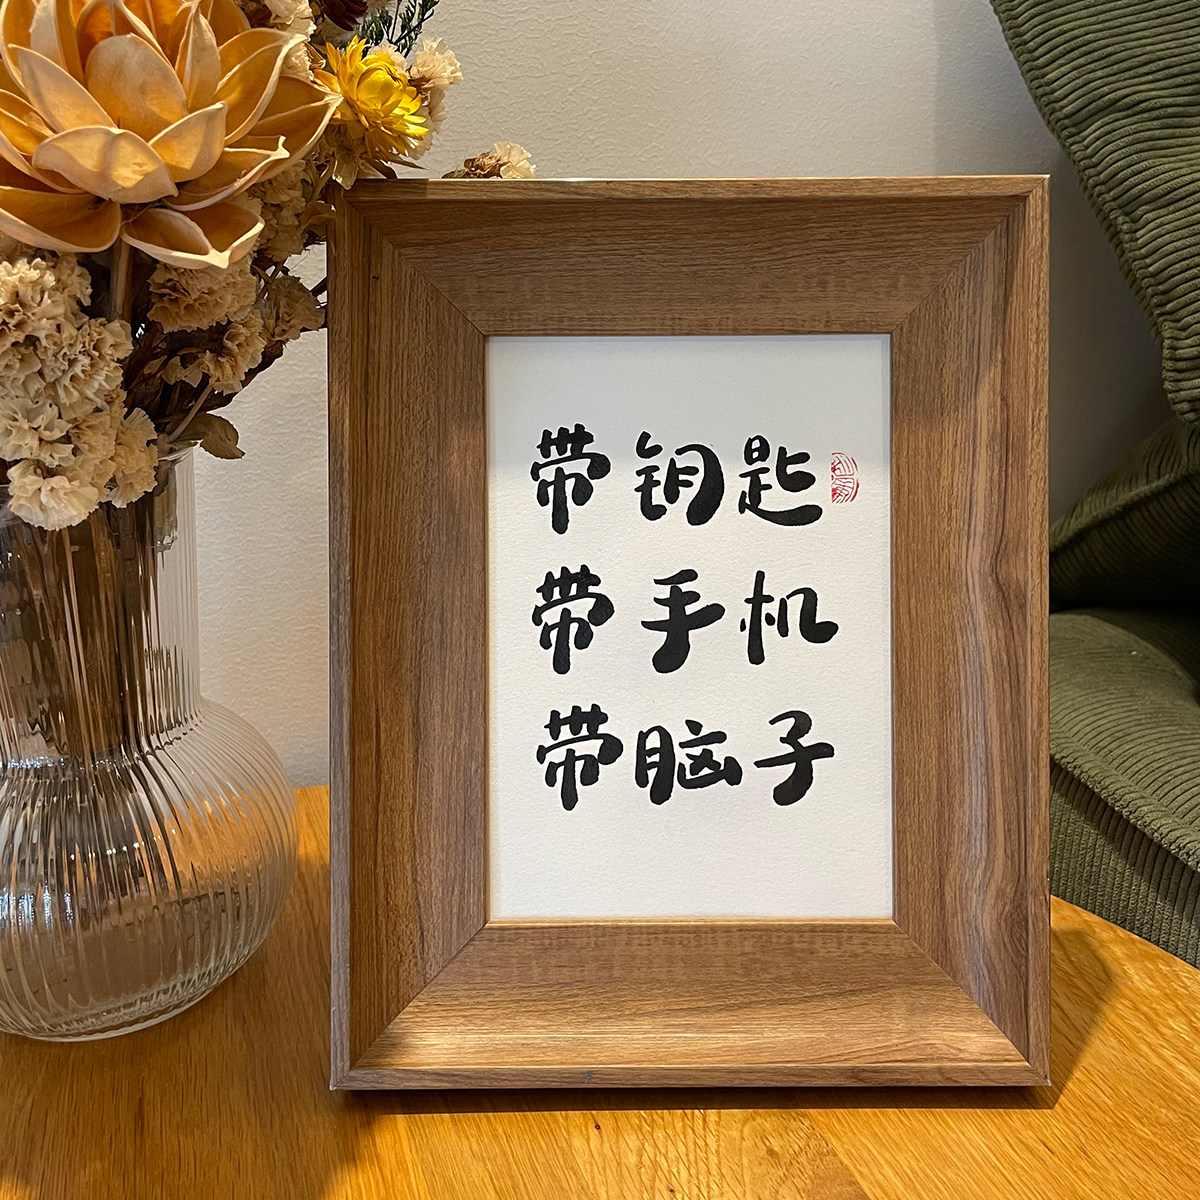 带钥匙
带手机
带脑子